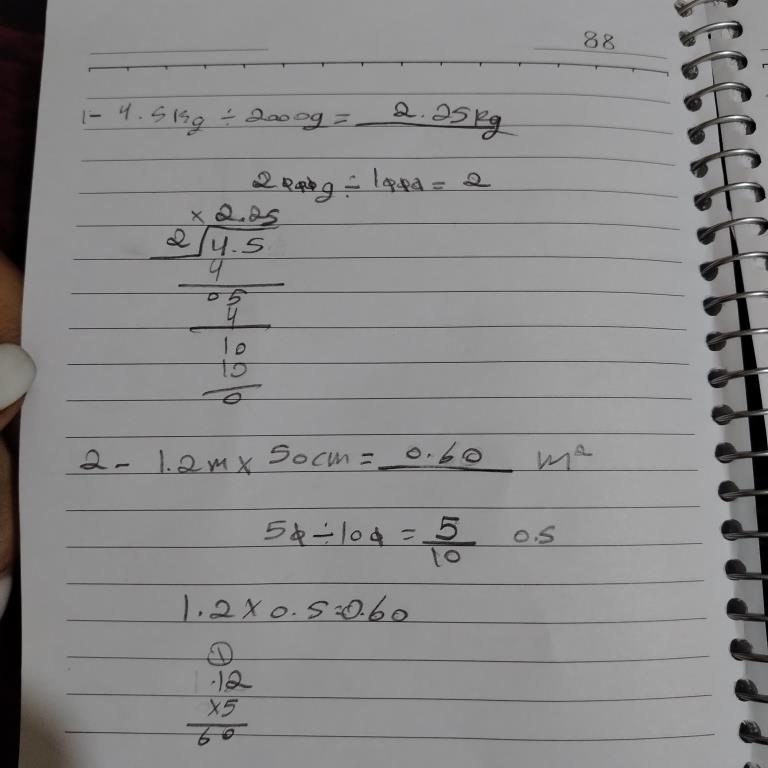 88
1- 4.5Kg ÷ 2000g = 2.25Kg
2000g ÷ 1000 = 2
× 2.25
2 4.5
4
05
4
10
10
0
2 - 1.2m × 50cm = 0.60 m²
50 ÷ 100 = 5/10 0.5
1.2 × 0.5 = 0.60
1
.12
×5
60